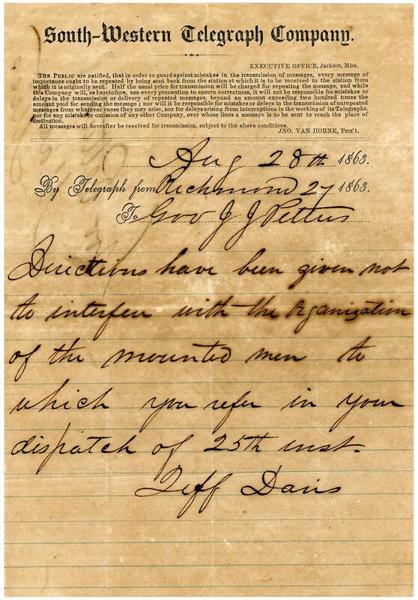 South-Western Telegraph Company.
EXECUTIVE OFFICE, Jackson, Miss.
THE PUBLIC are notified, that in order to guard against mistakes in the transmission of messages, every message of
importance ought to be repeated by being sent back from the station at which it is to be received to the station from
which it is originally sent. Half the usual price for transmission will be charged for repeating the message, and while
this Company will, as heretofore, use every precaution to ensure correctness, it will not be responsible for mistakes or
delays in the transmission or delivery of repeated messages beyond an amount exceeding two hundred times the
amount paid for sending the message; nor will it be responsible for mistakes or delays in the transmission of unrepeated
messages from whatever cause they may arise, nor for delays arising from interruptions in the working of its Telegraphs,
nor for any mistake or omission of any other Company, over whose lines a message is to be sent to reach the place of
destination.
All messages will hereafter be received for transmission, subject to the above conditions.
JNO. VAN HORNE, Pres't.
Aug 28th 1863.
By Telegraph from Richmond 27 1863.
To Gov J J Pettus
Directions have been given not
to interfere with the Organization
of the mounted men to
which you refer in your
dispatch of 25th inst.
Jeff Davis